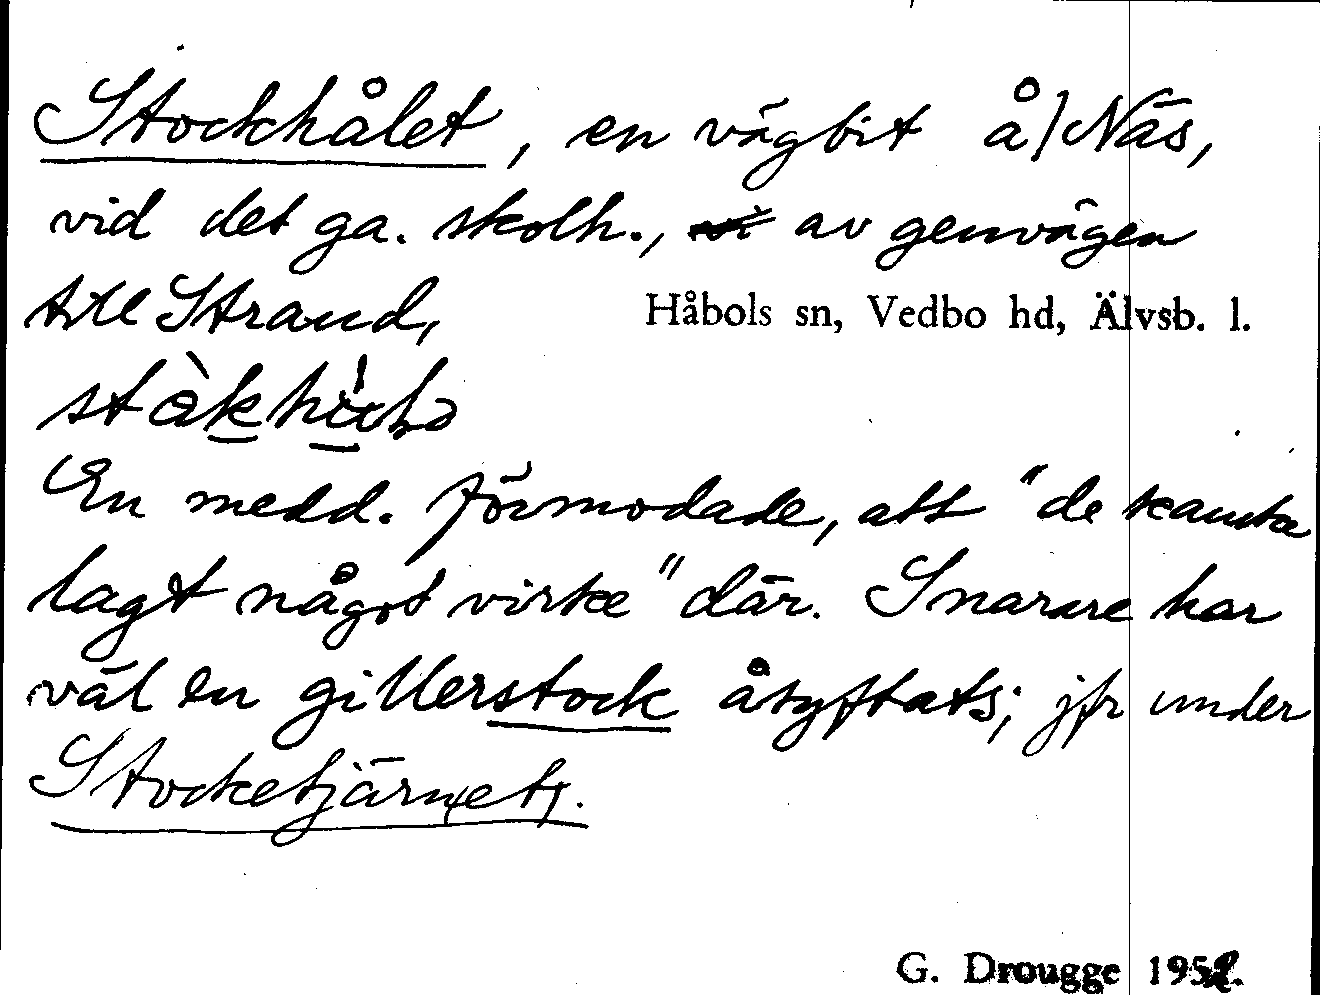 Stockhålet, en vägbit å) Näs,
vid det ga. skolh., av genvägen
till Strand,
Håbols sn, Vedbo hd, Älvsb. l.
En medd. förmodade, att "de kanske
lagt något virke" där. Snarare har
väl en gillerstock åsyftats; jfr under
Stocketjärn(et).
G. Drougge 1952.